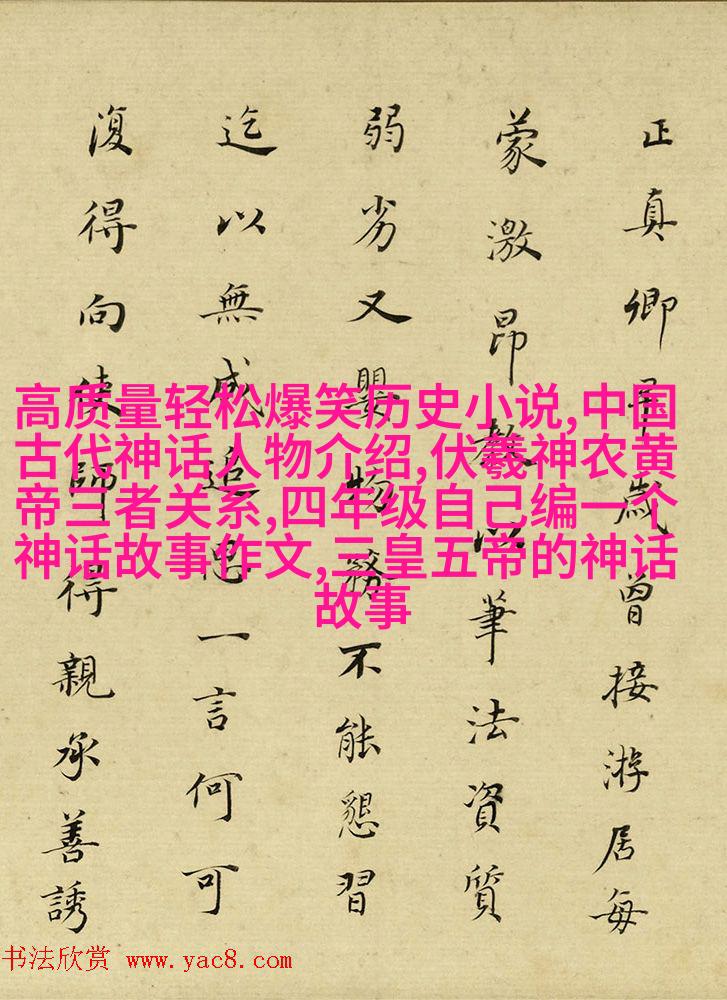 正真卿早歲曾接游居每
蒙激昂教以筆法資質
弱劣又嬰物務不能懇習
迄以無成追思一言何可
復得向使師得親承善誘
高质量轻松爆笑历史小说,中国
古代神话人物介绍,伏羲神农黄
帝三者关系,四年级自己编一个
神话故事作文,三皇五帝的神话
故事
书法欣赏 www.yac8.com